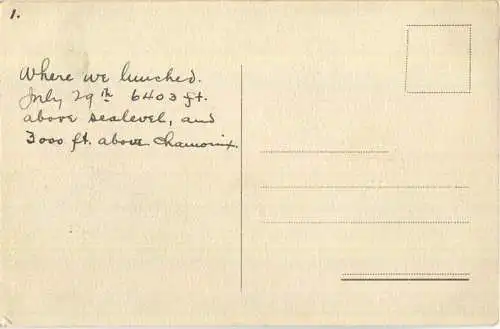 1.
Where we lunched.
July 29th 6403 ft.
above sealevel, and
3000 ft. above Chamonix.